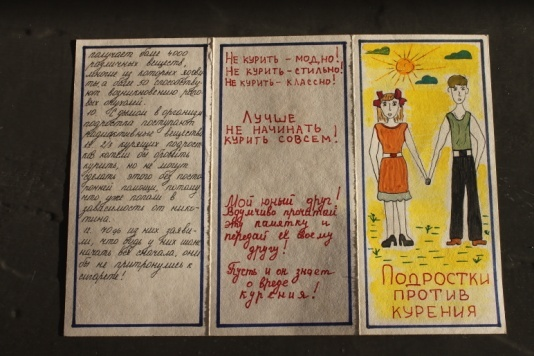 получает более 4000
различных веществ,
многие из которых ядови-
ты, а более 50 способству-
ют возникновению рако-
вых опухолей.
10. С дымом в организм
подростка поступают
радиоактивные вещества
2/3 курящих подрост-
ков хотели бы бросить
курить, но не могут
сделать этого без посто-
ронней помощи, потому
что уже попали в
зависимость от нико-
тина.
11. 70% из них заяви-
ли, что будь у них шанс
начать всё сначала, они
бы не притронулись к
сигарете!
НЕ КУРИТЬ - МОДНО!
НЕ КУРИТЬ - СТИЛЬНО!
НЕ КУРИТЬ - КЛАССНО!
ЛУЧШЕ
НЕ НАЧИНАТЬ
КУРИТЬ СОВСЕМ!
Мой юный друг!
Вдумчиво прочитай
эту памятку и
передай её своему
другу!
Пусть и он знает
о вреде
курения!
ПОДРОСТКИ
ПРОТИВ
КУРЕНИЯ